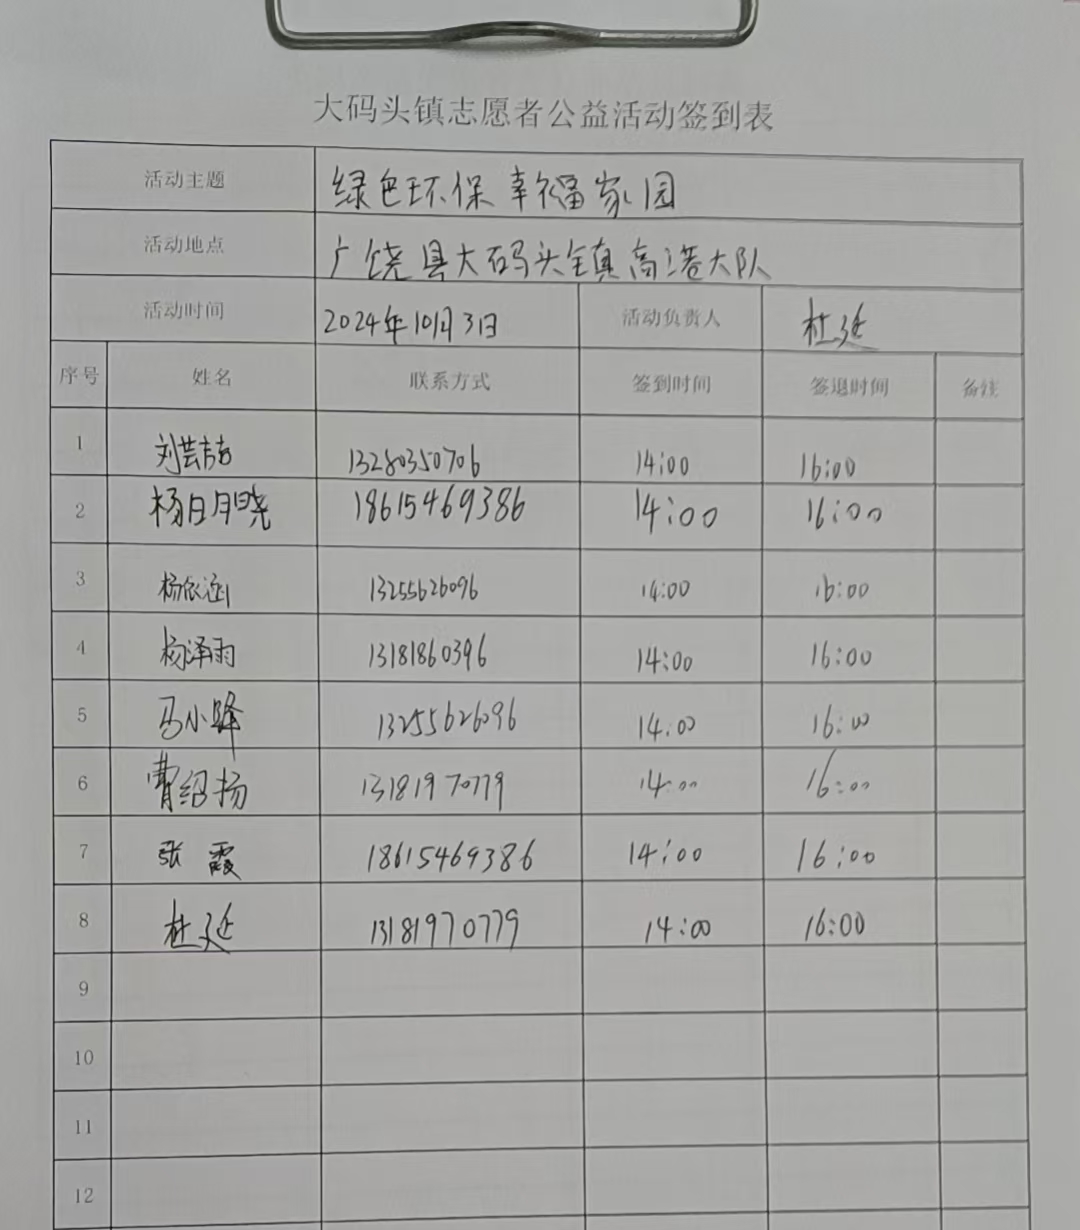 大码头镇志愿者公益活动签到表
活动主题 绿色环保 幸福家园
活动地点 广饶县大码头镇高港大队
活动时间 2024年10月3日 活动负责人 杜延
序号 姓名 联系方式 签到时间 签退时间 备注
1 刘芸喆 13280350706 14:00 16:00
2 杨明晓 18615469386 14:00 16:00
3 杨依涵 13255626096 14:00 16:00
4 杨泽雨 13181860396 14:00 16:00
5 马小峰 13255626096 14:00 16:00
6 曹绍扬 13181970779 14:00 16:00
7 张霞 18615469386 14:00 16:00
8 杜延 13181970779 14:00 16:00
9
10
11
12